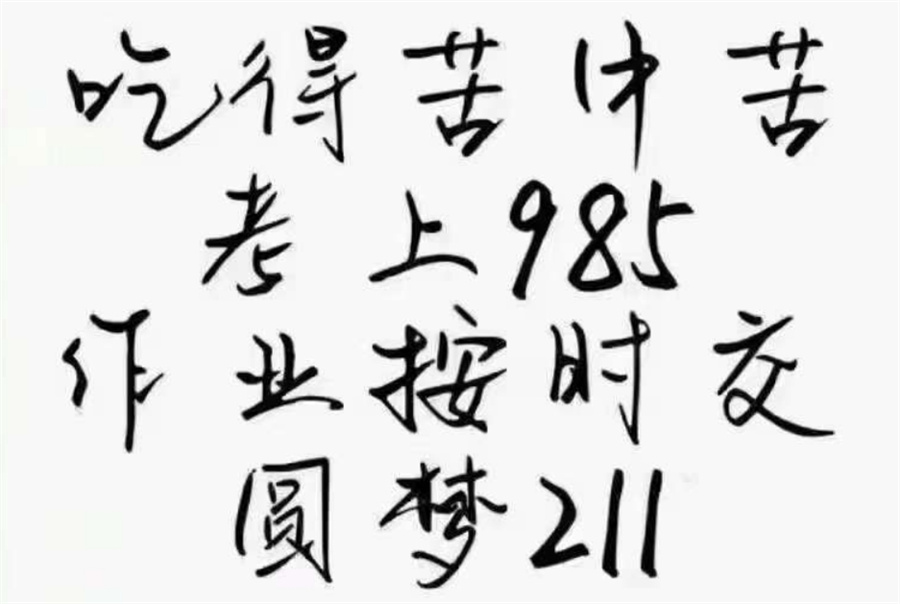 吃得苦中苦
考上985
作业按时交
圆梦211